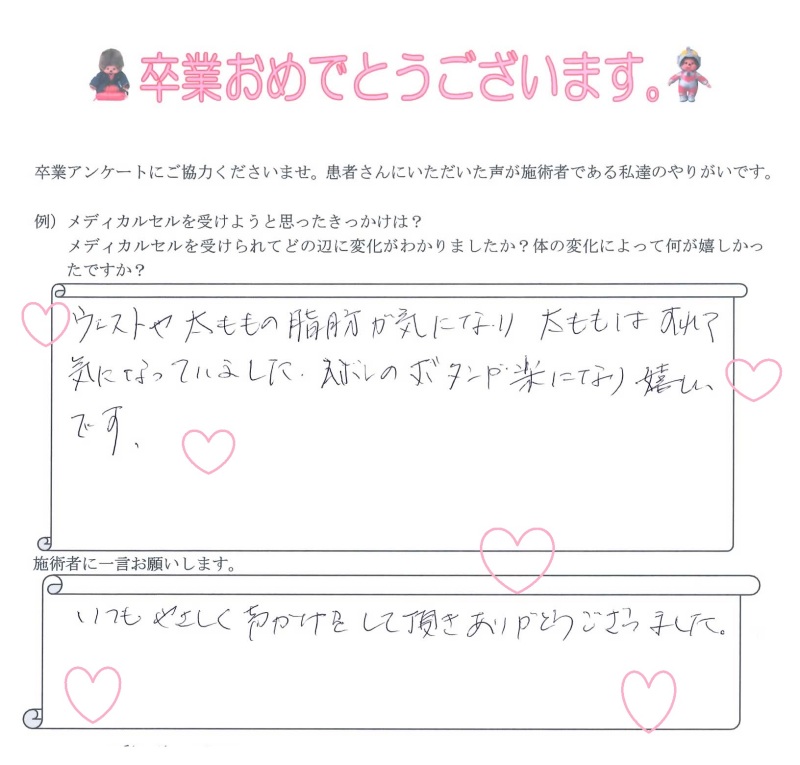 卒業おめでとうございます。
卒業アンケートにご協力くださいませ。患者さんにいただいた声が施術者である私達のやりがいです。
例）メディカルセルを受けようと思ったきっかけは？
メディカルセルを受けられてどの辺に変化がわかりましたか？体の変化によって何が嬉しかっ
たですか？
ウエストや太ももの脂肪が気になり 太ももはすれて
気になっていました. ズボンのボタンが楽になり嬉しい
です、
施術者に一言お願いします。
いつもやさしく声かけをして頂きありがとうございました。